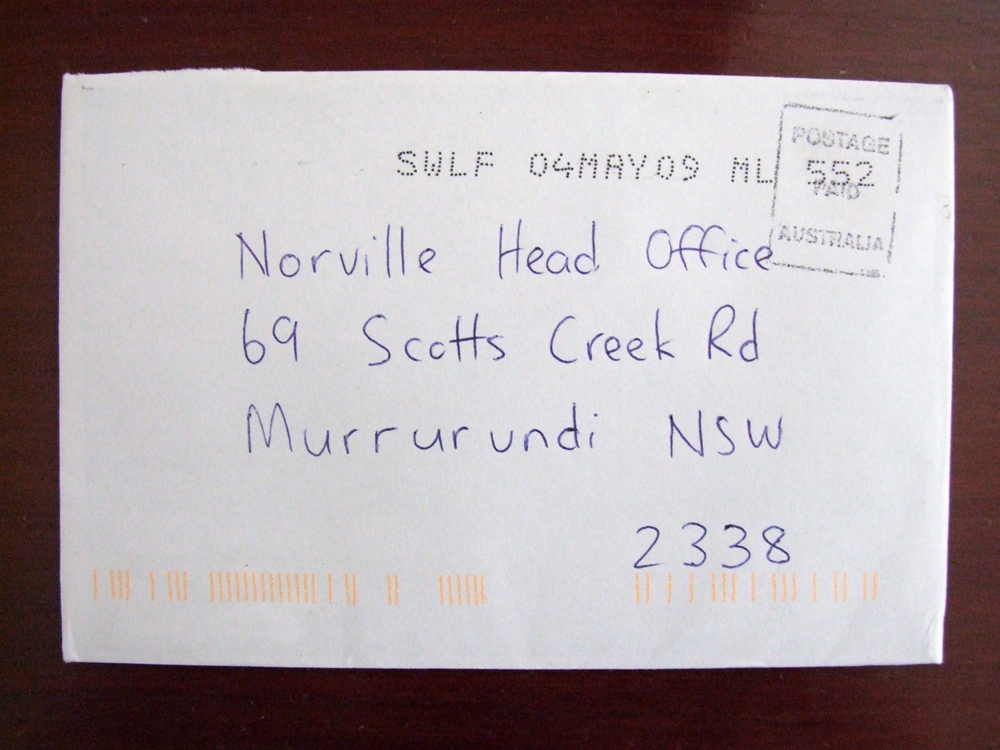 SWLF 04MAY09 ML 552
POSTAGE
PAID
AUSTRALIA
Norville Head Office
69 Scotts Creek Rd
Murrurundi NSW
2338